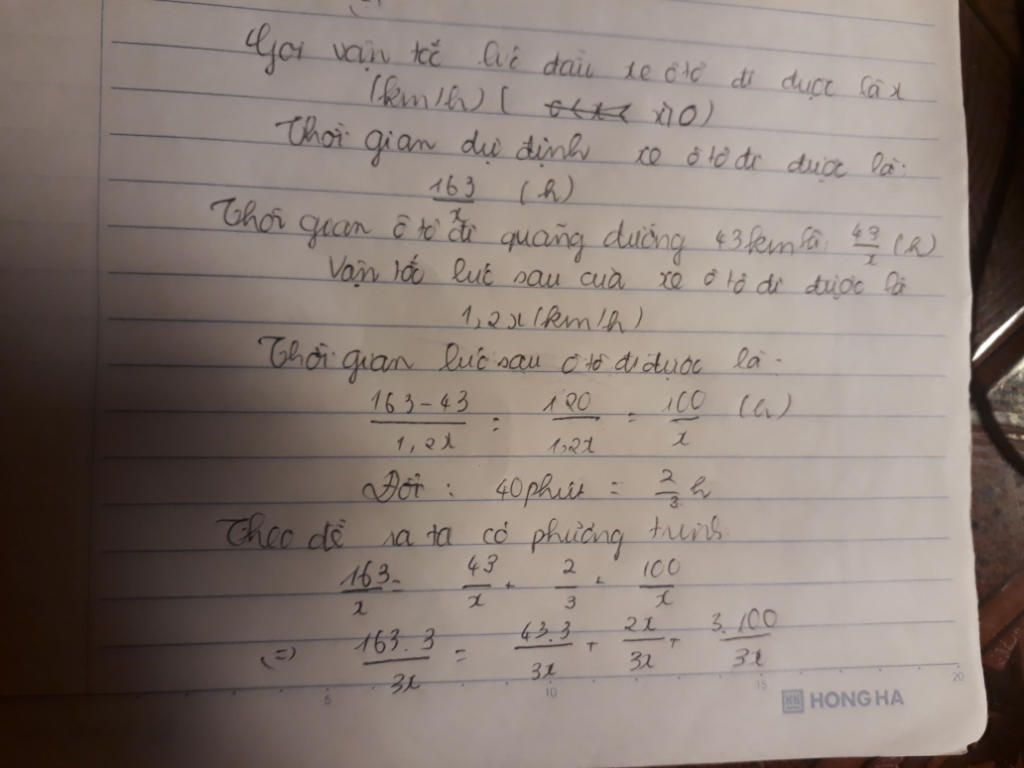 Gọi vận tốc lúc đầu xe ô tô đi được là x
(km/h) ( x>0)
Thời gian dự định xe ô tô đi được là:
163/x (h)
Thời gian ô tô đi quãng đường 43km là: 43/x (h)
Vận tốc lúc sau của xe ô tô đi được là
1,2x (km/h)
Thời gian lúc sau ô tô đi được là:
(163-43)/1,2x = 120/1,2x = 100/x (h)
Đổi : 40 phút = 2/3 h
Theo đề ra ta có phương trình
163/x = 43/x + 2/3 + 100/x
(=) 163.3/3x = 43.3/3x + 2x/3x + 3.100/3x
5 10 15 20
HH HONG HA